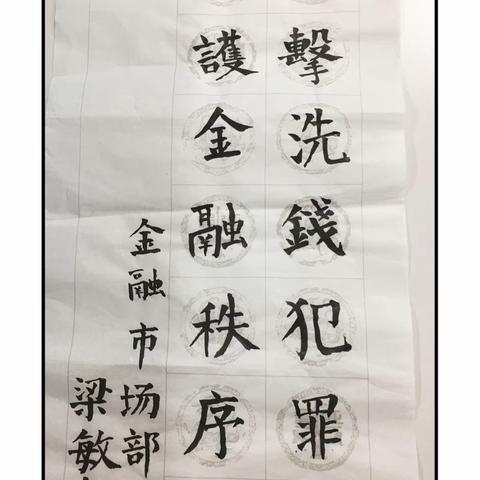 擊洗錢犯罪
護金融秩序
金融市场部
梁敏